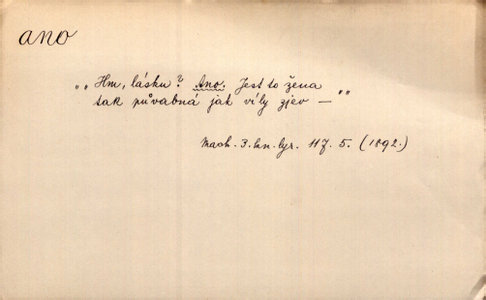 ano
„ Hm, lásku? Ano. Jest to žena
tak půvabná jak víly zjev — „
Mach. 3. kn. lyr. 117. 5. (1892.)